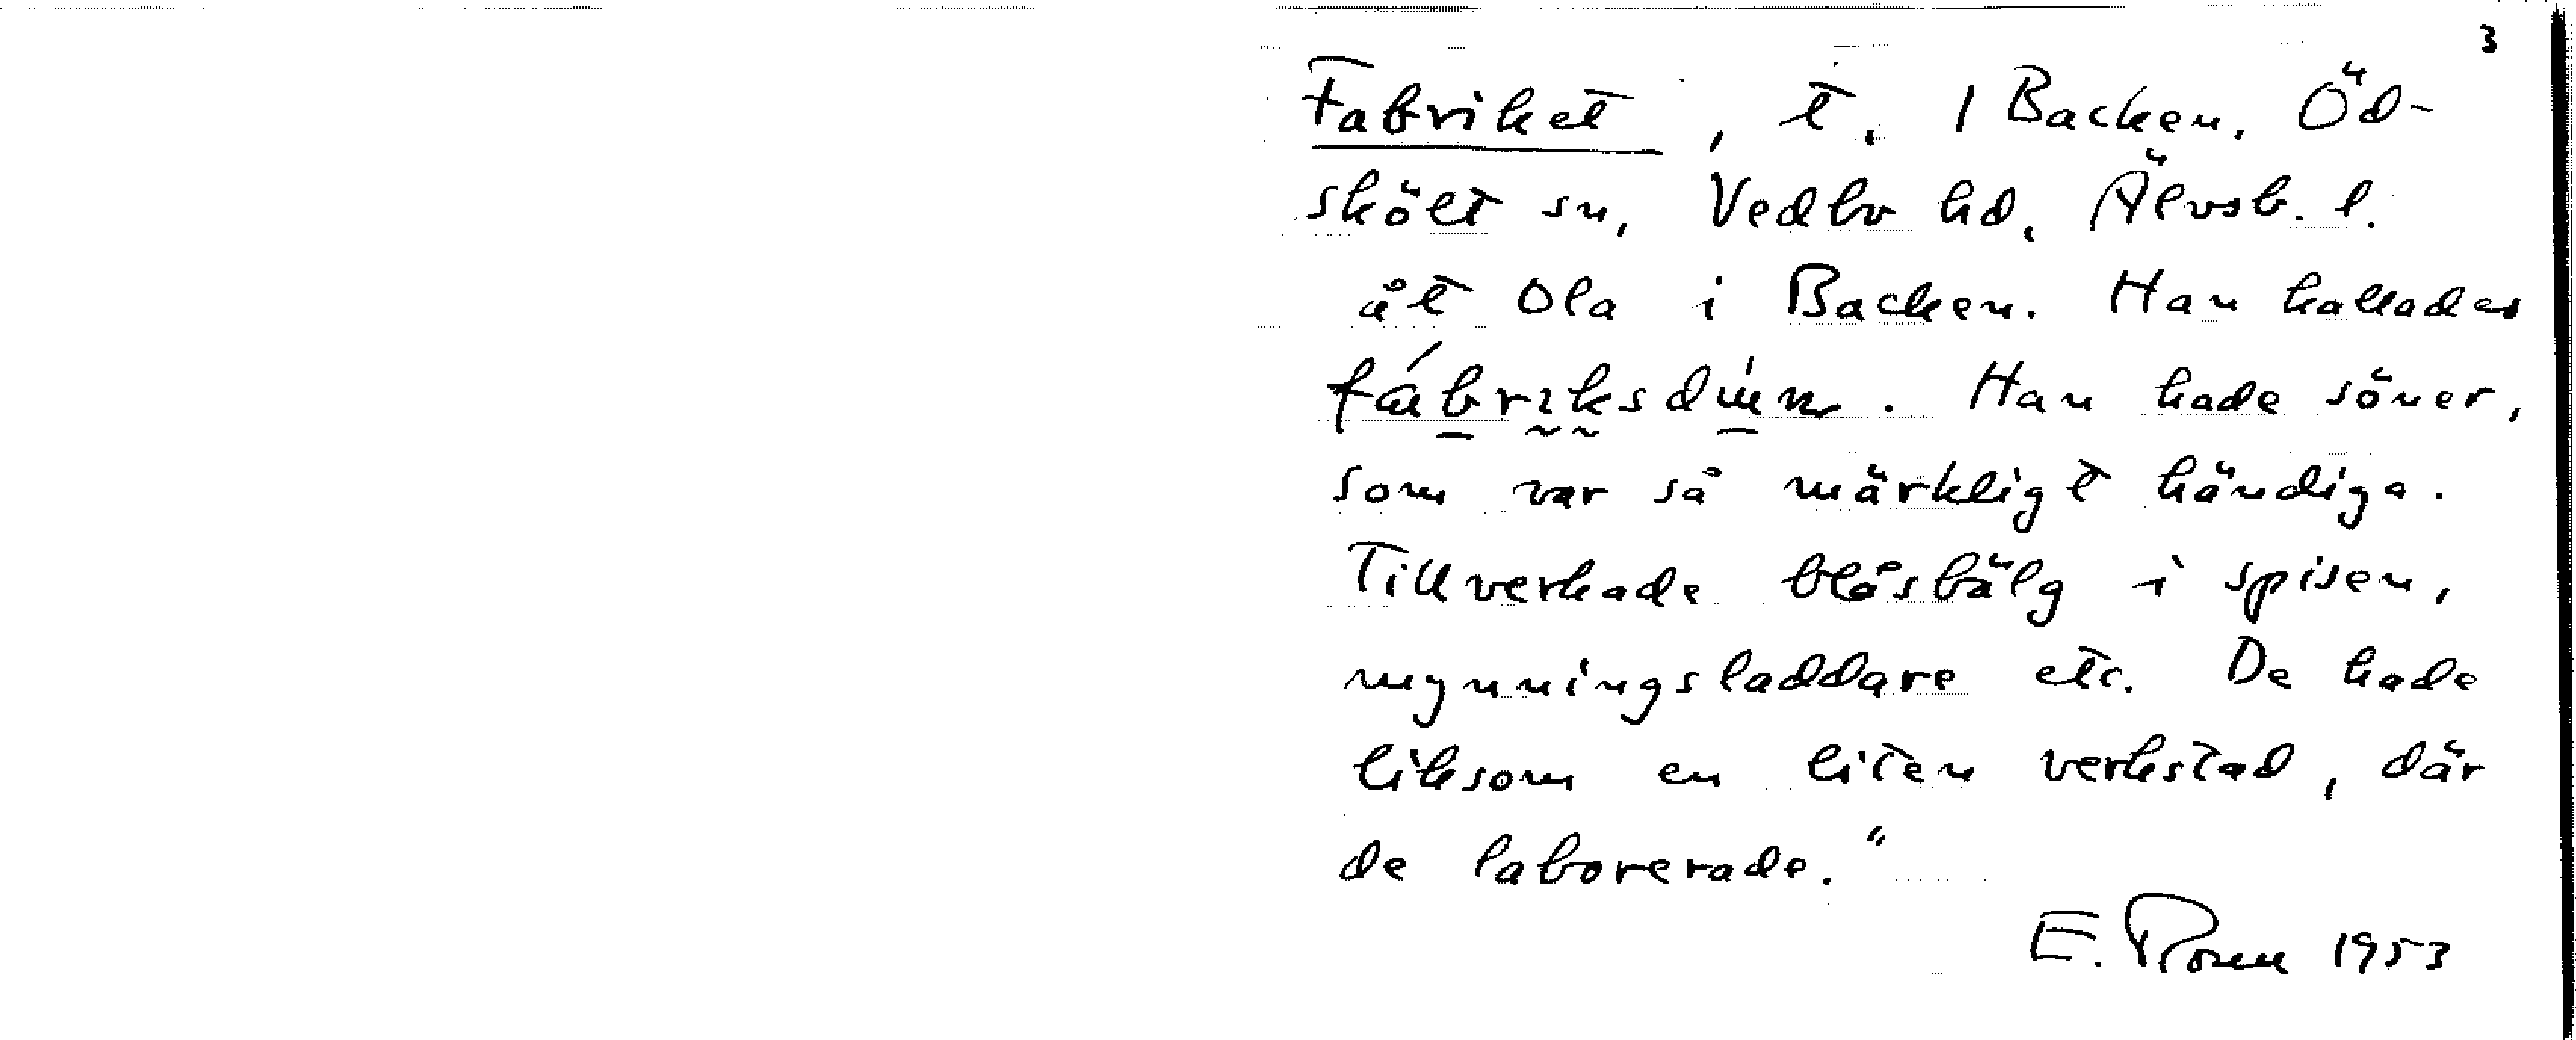 3
Fabriket, t. 1 Backen, Öd-
skölt sn, Vedbo hd, Älvsb. l.
åt Ola i Backen. Han kallades
. Han hade söner,
som var så märkligt händiga.
Tillverkade blåsbälg i spisen,
mynningsladdare etc. De hade
liksom en liten verkstad, där
de laborerade."
E. Rosen 1953